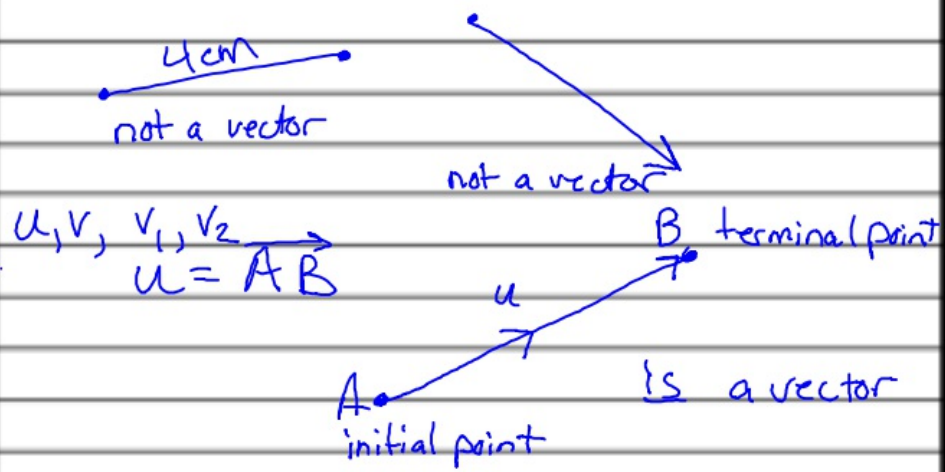 4cm
not a vector
not a vector
u, v, v₁, v₂
u = A⃗B⃗
B terminal point
u
A
initial point
is a vector